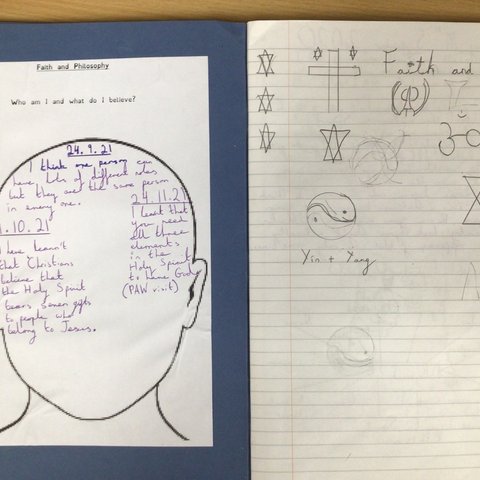 Faith and Philosophy
Who am I and what do I believe?
24.9.21
I think one person can
have lots of different roles
but they are the same person
in every one.
.10.21
I have learn't
that Christians
believe that
the Holy Spirit
bears seven gifts
to people who
belong to Jesus.
24.11.21
I learnt that
you need
all three
elements
in the
Holy Spirit
to have God
(PAW visit)
Faith and
Yin + Yang